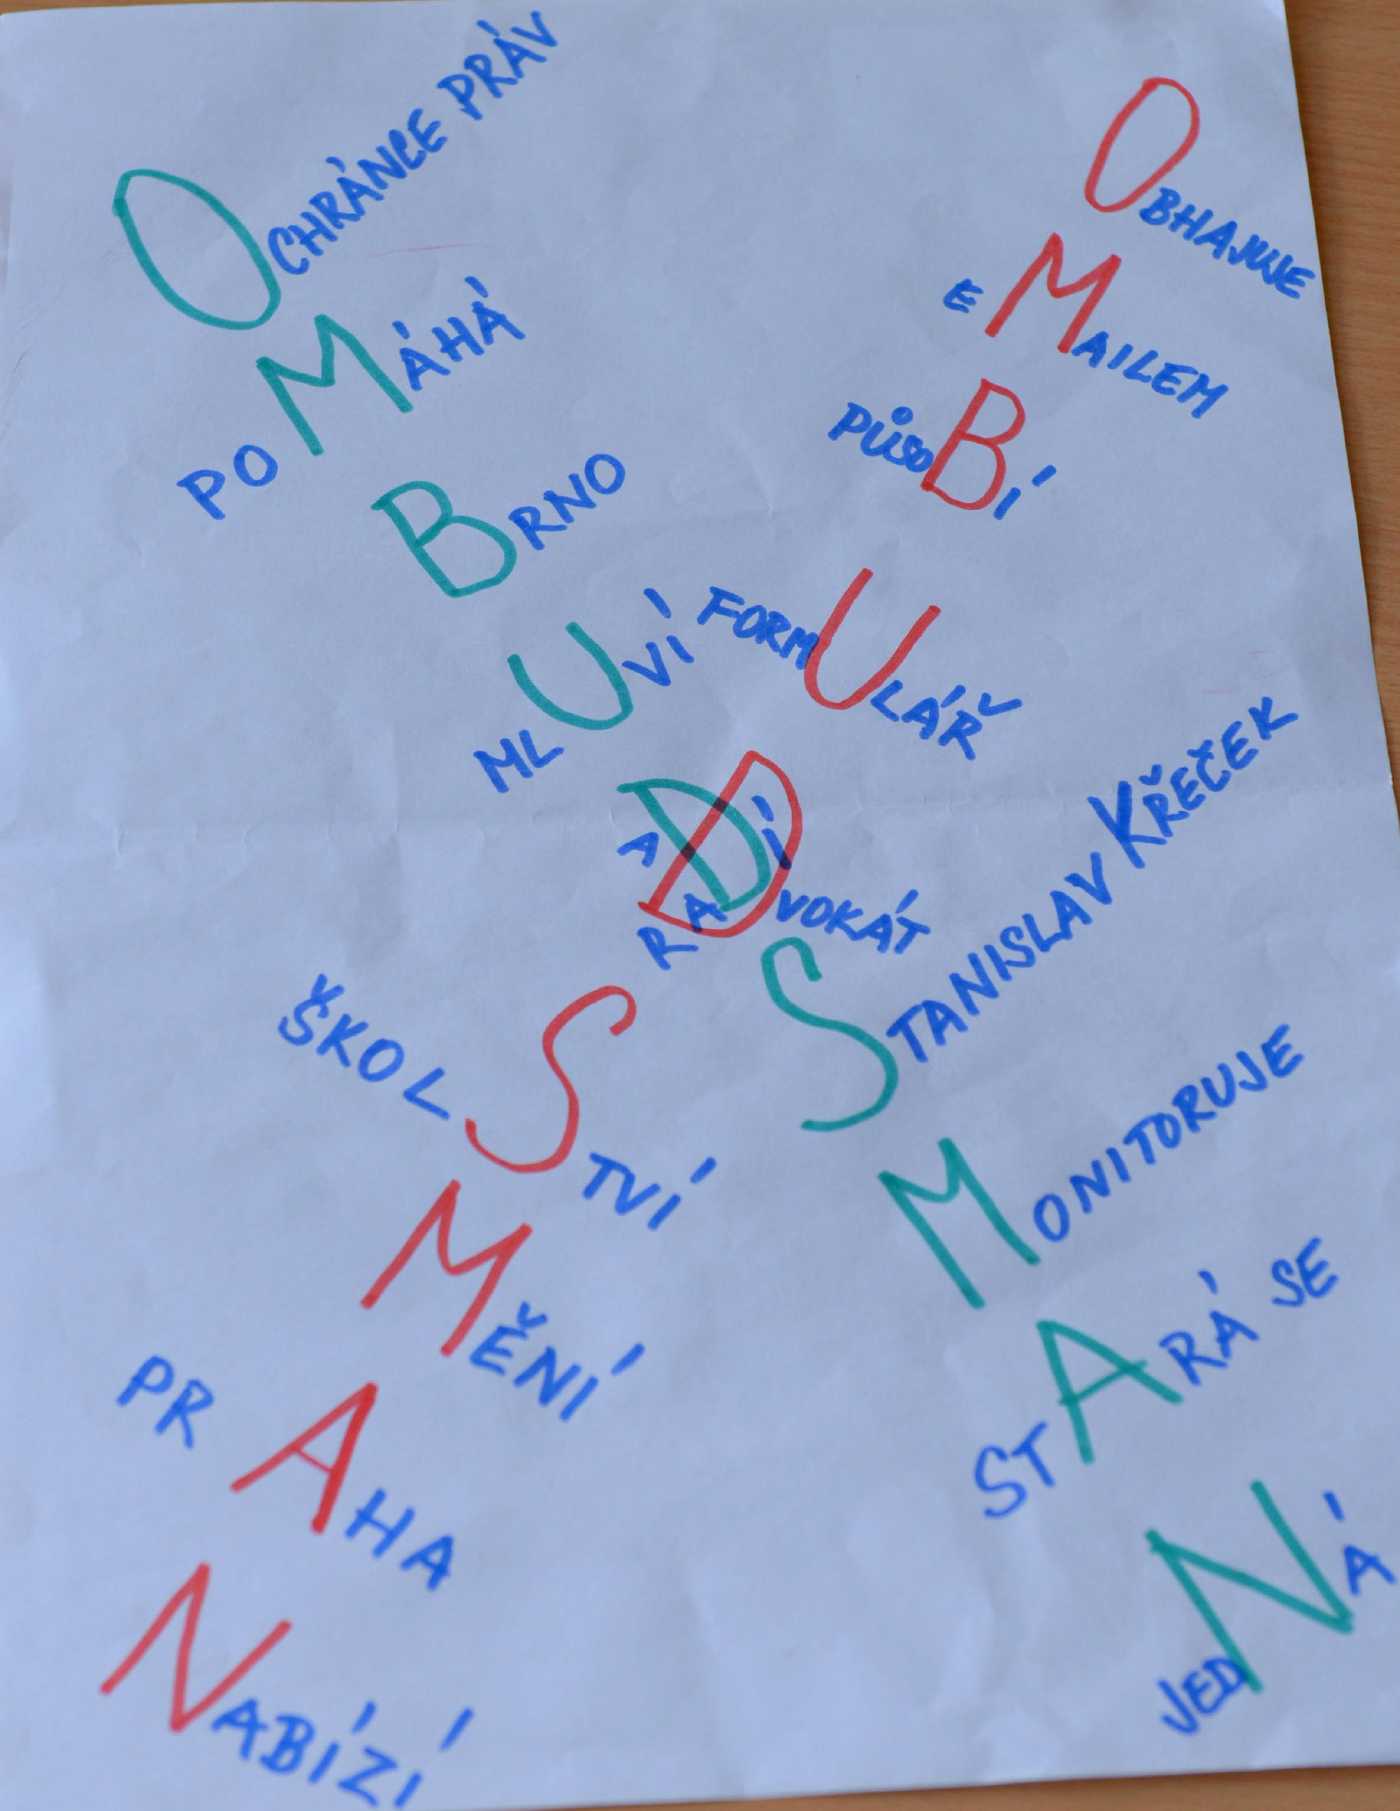 OCHRÁNCE PRÁV
POMÁHÁ
BRNO
MLUVÍ
ADVOKÁT
STANISLAV KŘEČEK
MONITORUJE
STARÁ SE
JEDNÁ
OBHAJUJE
E MAILEM
PŮSOBÍ
FORMULÁŘ
RADÍ
ŠKOLSTVÍ
MĚNÍ
PRAHA
NABÍZÍ